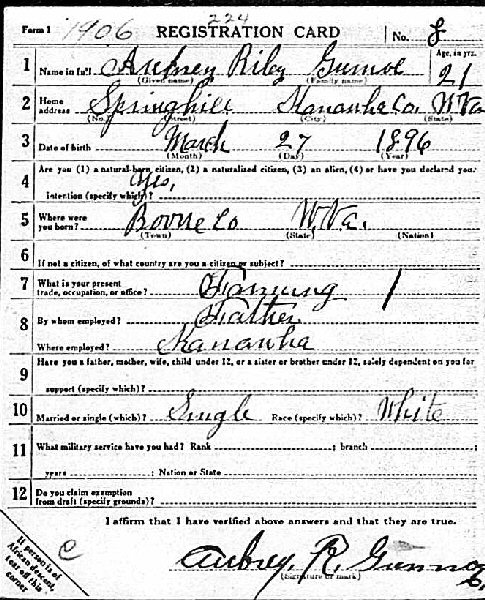 224
Form 1 1906 REGISTRATION CARD No. 8
1 Name in full Aubrey Riley Gunnoe Age, in yrs. 21
(Given name) (Family name)
2 Home address Springhill Kanawha Co. W Va
(No.) (Street) (City) (State)
3 Date of birth March 27 1896
(Month) (Day) (Year)
Are you (1) a natural-born citizen, (2) a naturalized citizen, (3) an alien, (4) or have you declared your
4 Intention (specify which)? Yes,
5 Where were you born? Boone Co W. Va.
(Town) (State) (Nation)
6 If not a citizen, of what country are you a citizen or subject?
7 What is your present trade, occupation, or office? Farming 1
8 By whom employed? Father
Where employed? Kanawha
9 Have you a father, mother, wife, child under 12, or a sister or brother under 12, solely dependent on you for
support (specify which)?
10 Married or single (which)? Single Race (specify which)? White
11 What military service have you had? Rank ; branch ;
years ; Nation or State
12 Do you claim exemption from draft (specify grounds)?
I affirm that I have verified above answers and that they are true.
Aubrey. R. Gunnoe
(Signature or mark)
If person is of
African descent,
tear off this
corner
C